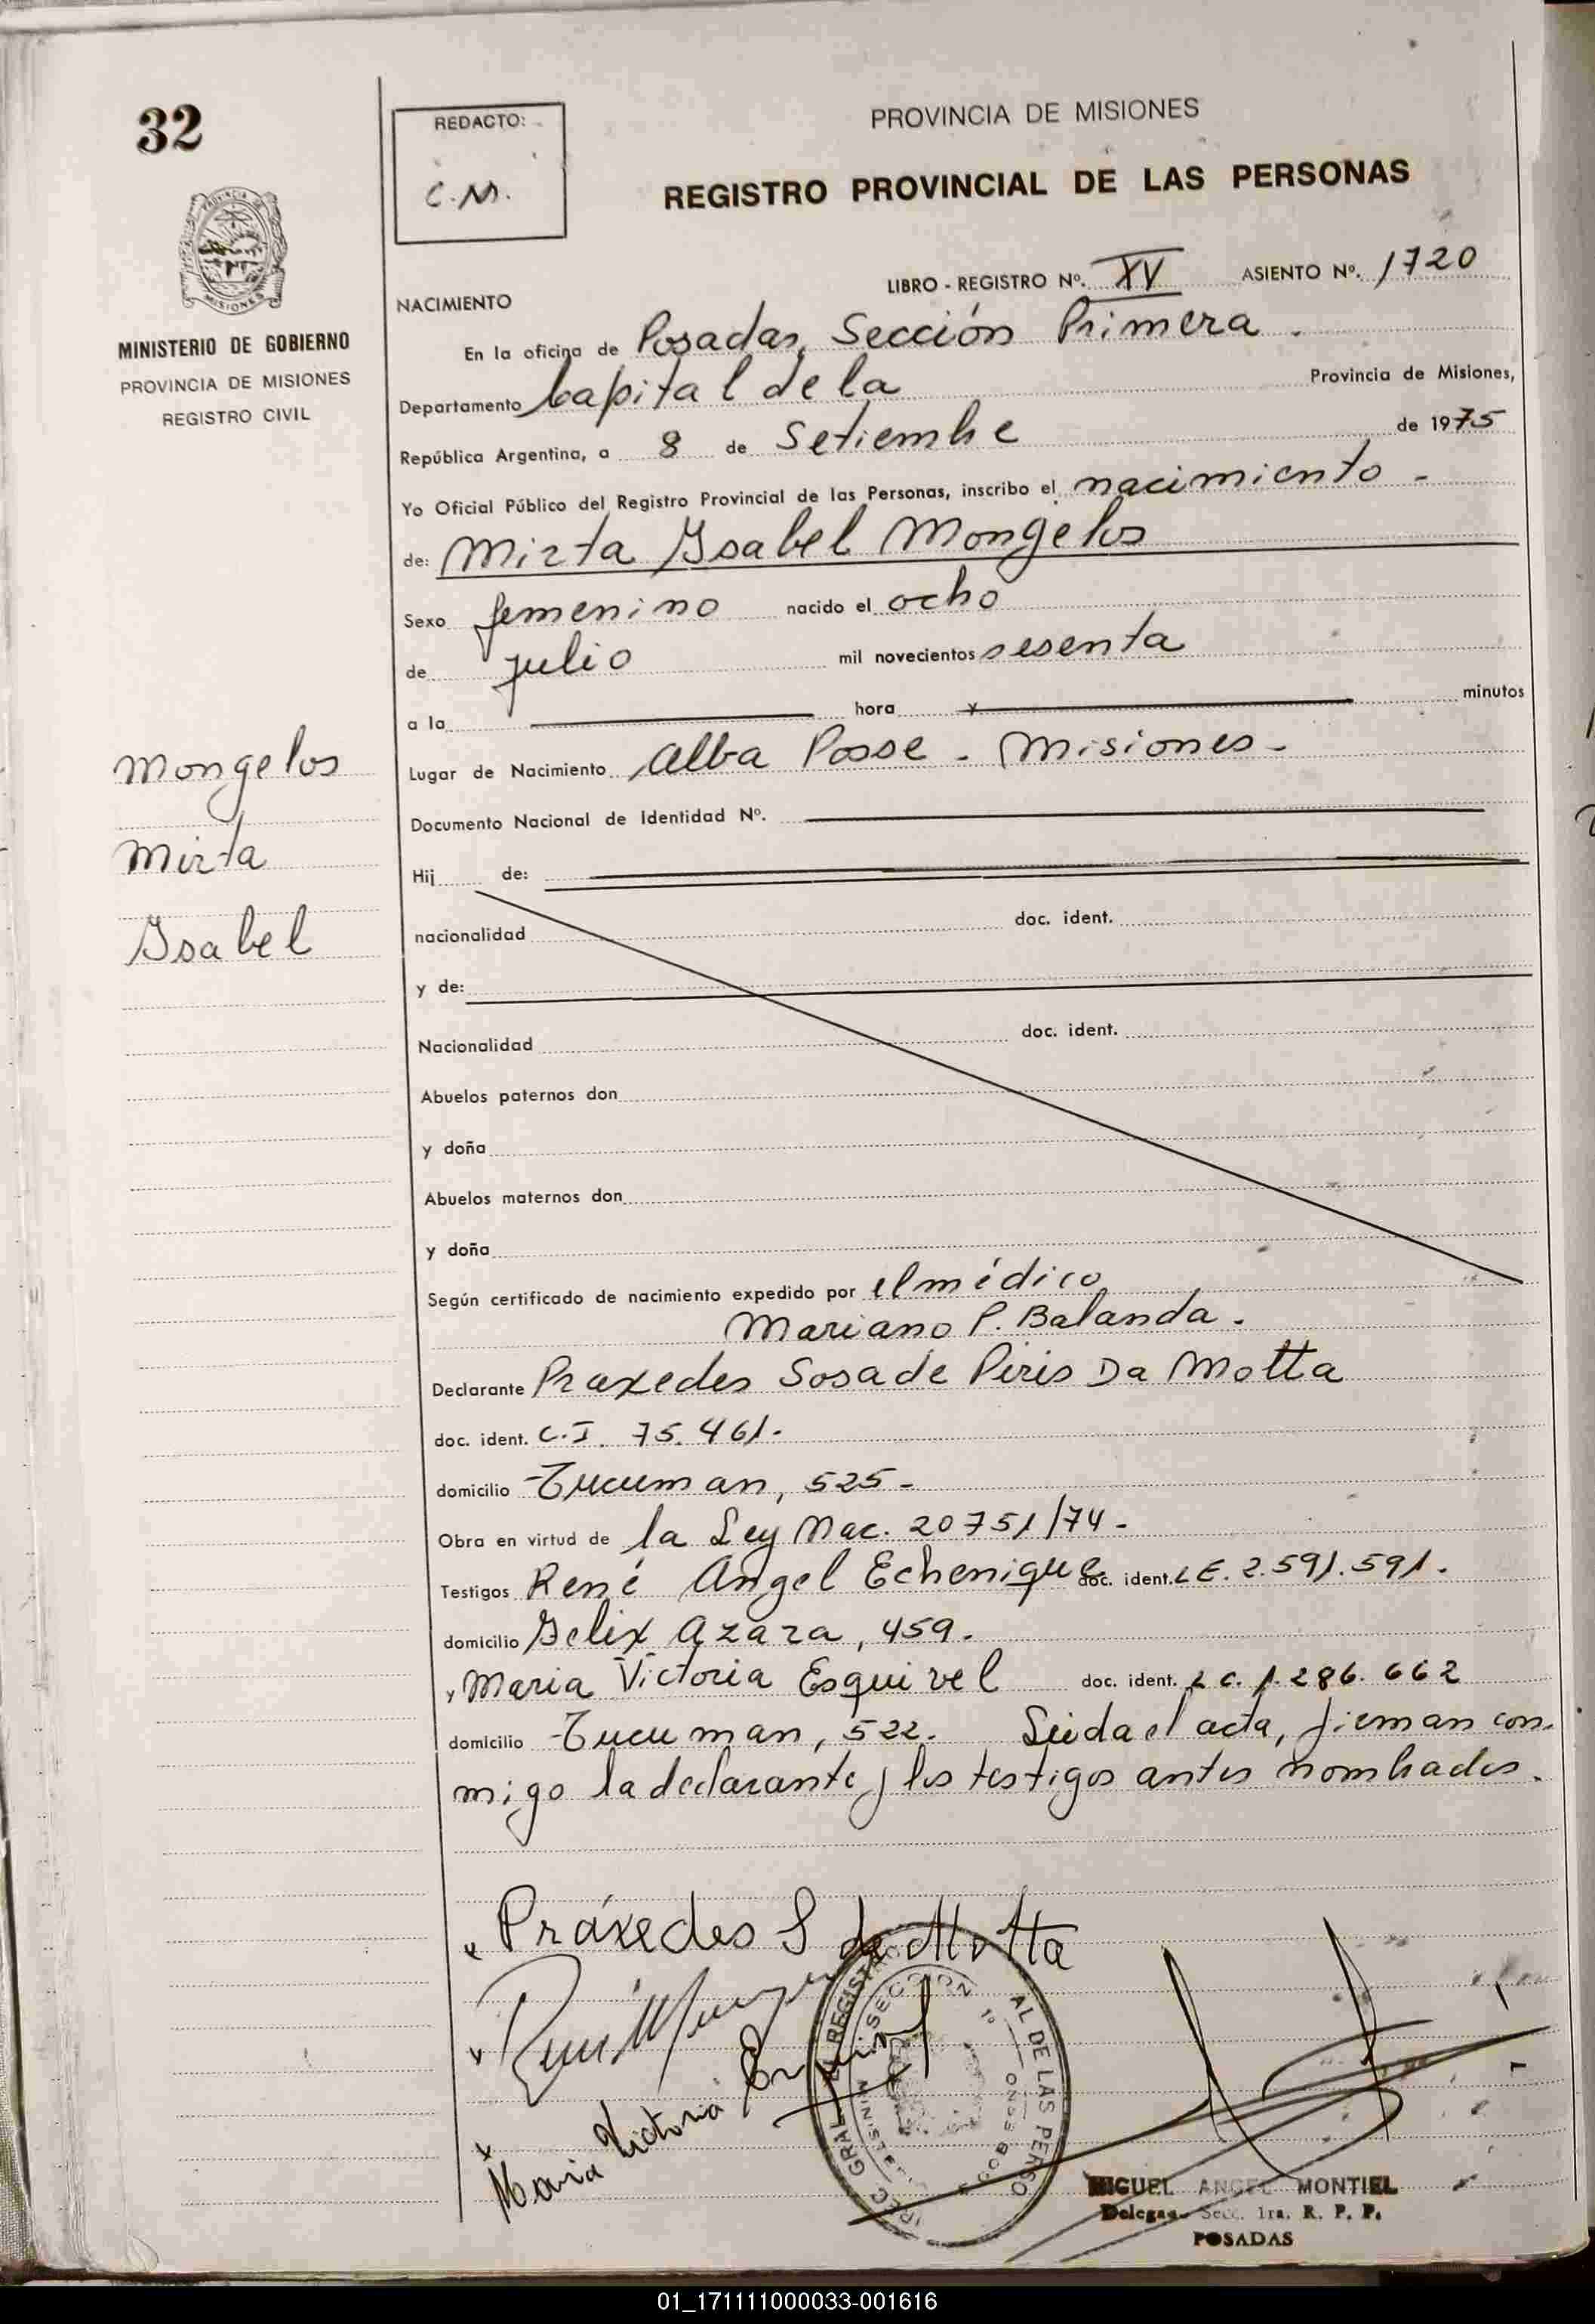 32
REDACTO:
C.M.
PROVINCIA DE MISIONES
REGISTRO PROVINCIAL DE LAS PERSONAS
MINISTERIO DE GOBIERNO
PROVINCIA DE MISIONES
REGISTRO CIVIL
LIBRO - REGISTRO Nº. XV ASIENTO Nº. 1720
NACIMIENTO
En la oficina de Posadas, Sección Primera.
Departamento Capital de la Provincia de Misiones,
República Argentina, a 8 de Setiembre de 1975
Yo Oficial Público del Registro Provincial de las Personas, inscribo el nacimiento -
de: Mirta Ysabel Mongelos
Sexo femenino nacido el ocho
de julio mil novecientos sesenta
a la hora minutos
Lugar de Nacimiento Alba Posse - Misiones -
Mongelos
Mirta
Ysabel
Documento Nacional de Identidad Nº.
Hij de:
nacionalidad doc. ident.
y de:
Nacionalidad doc. ident.
Abuelos paternos don
y doña
Abuelos maternos don
y doña
Según certificado de nacimiento expedido por el médico
Mariano P. Balanda.
Declarante Praxedes Sosa de Piris Da Motta
doc. ident. C.I. 75.461.
domicilio Tucuman, 525 -
Obra en virtud de la Ley Nac. 20751/74 -
Testigos René Angel Echenique doc. ident. L E. 2.591.591.
domicilio Felix Azara, 459.
y Maria Victoria Esquivel doc. ident. L C. 1.286.662
domicilio Tucuman, 522. Leida el acta, firman con-
migo la declarante y los testigos antes nombrados.
Práxedes S de Motta
Maria Victoria Esquivel
SECCION 1º
AL DE LAS PERSO
MIGUEL ANGEL MONTIEL
Delegado Secc. 1ra. R. P. P.
POSADAS
01_171111000033-001616